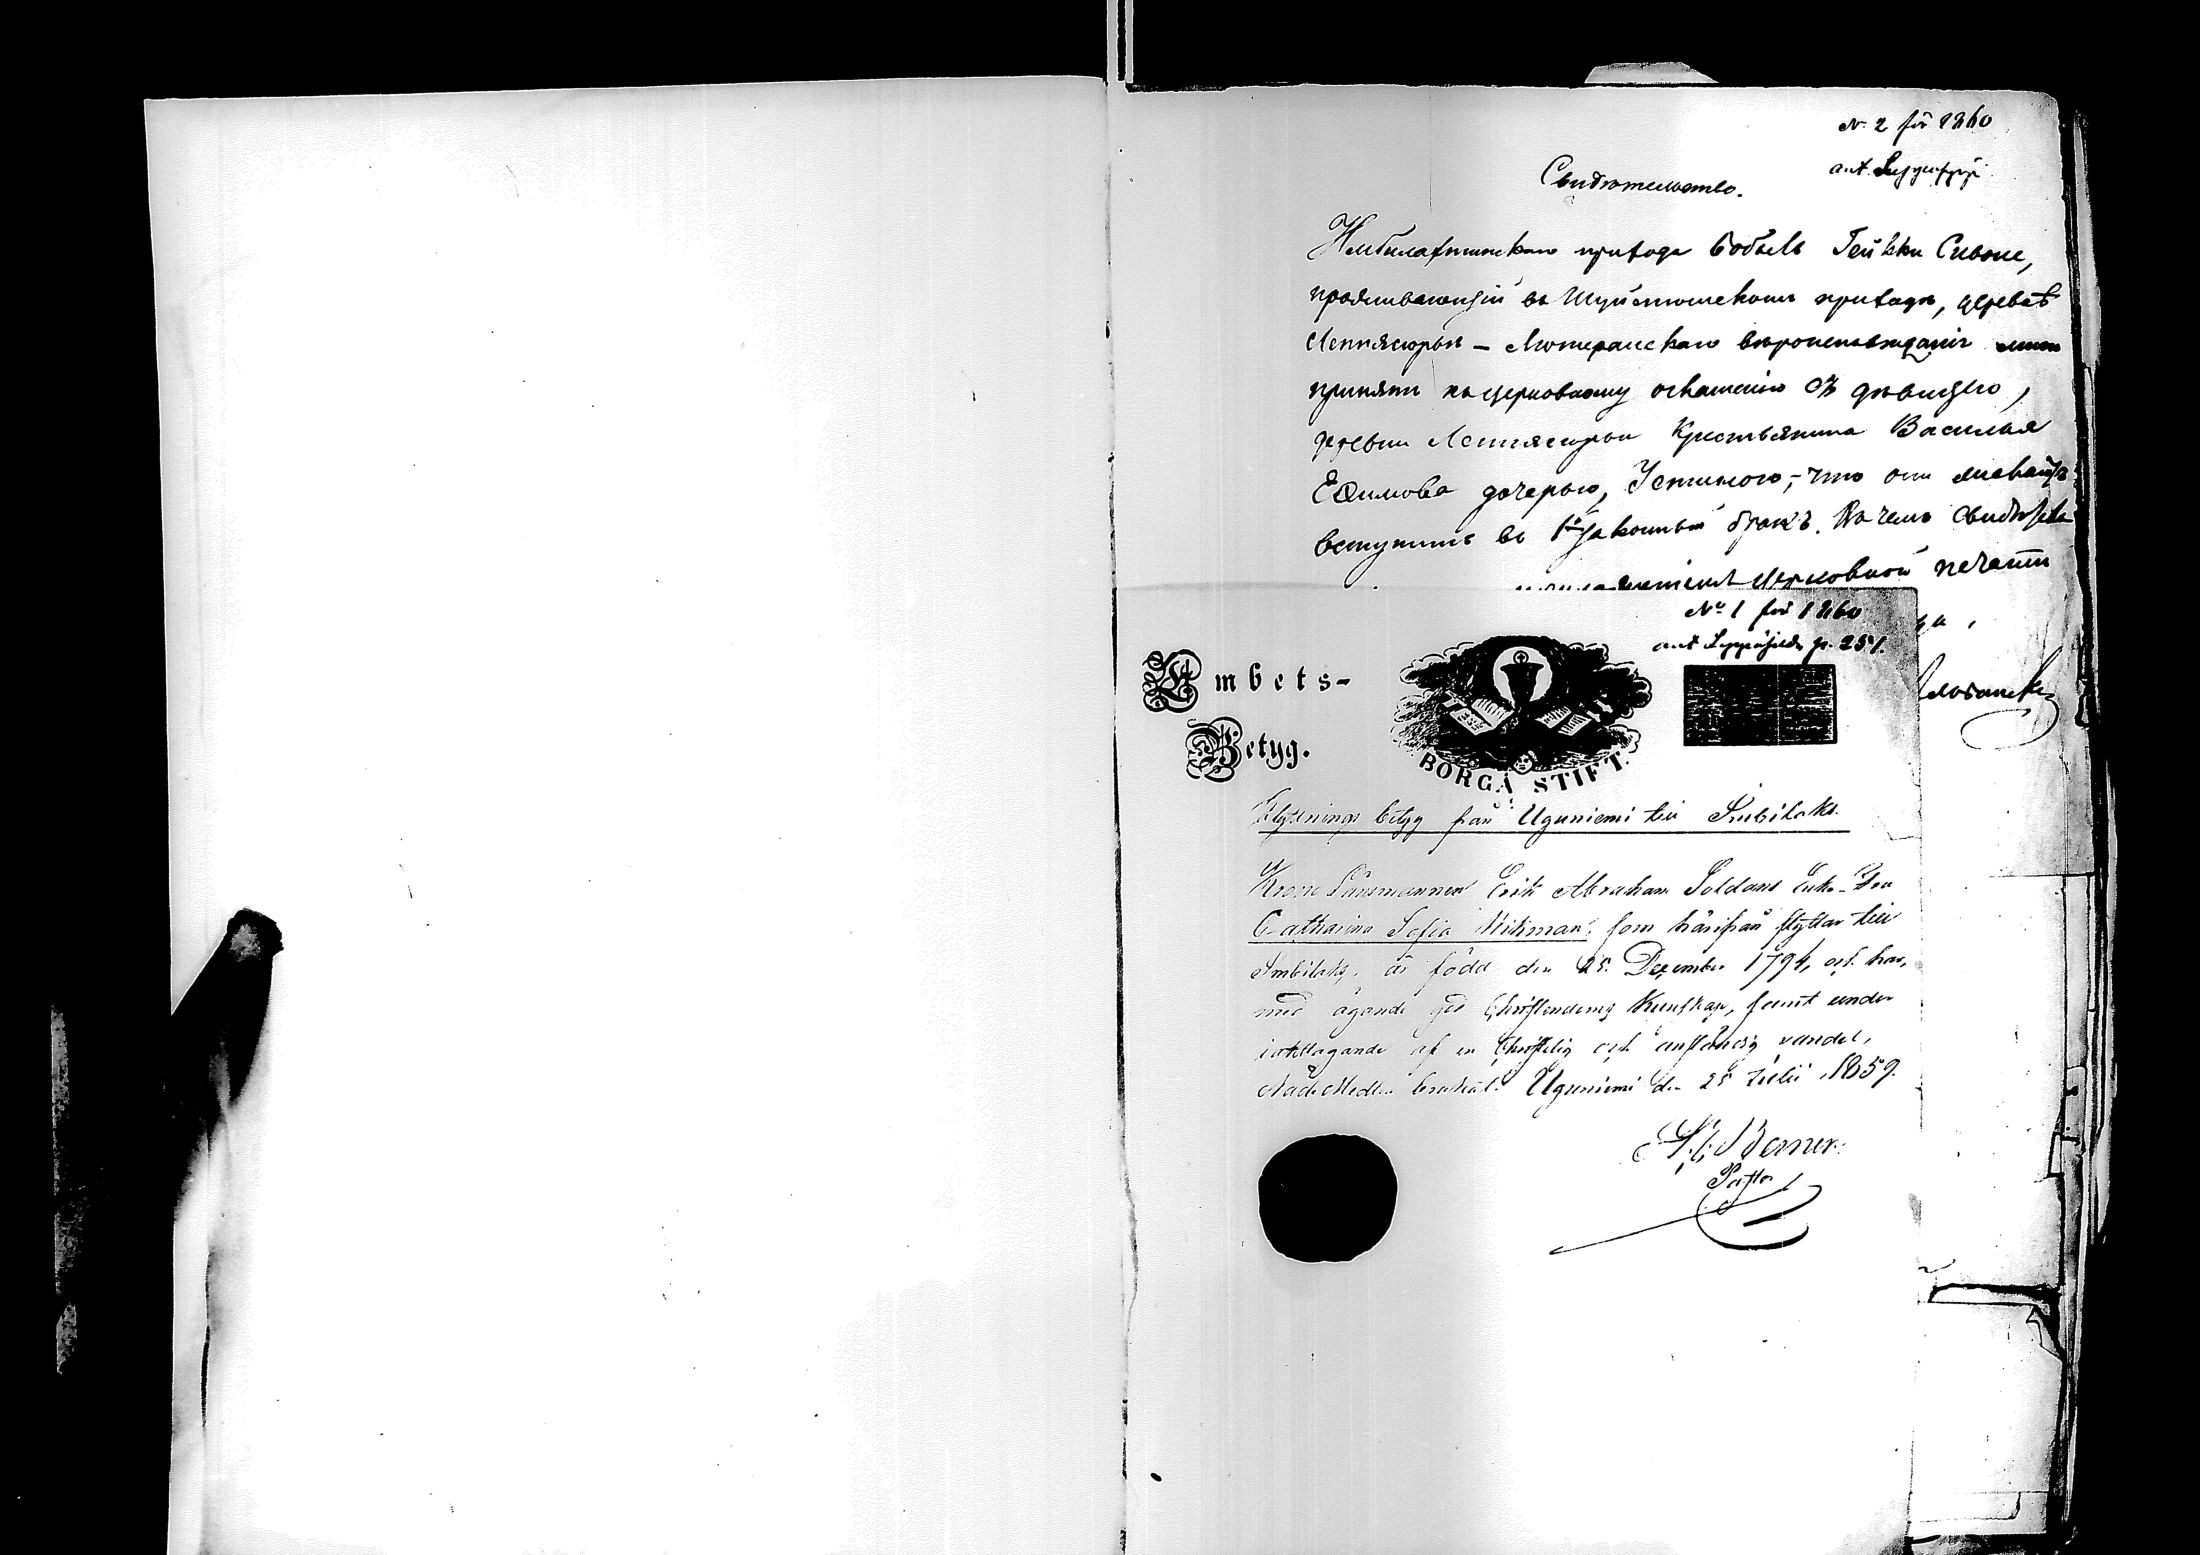 No 2 för 1860
ant. Leppäsyrjä
Свидѣтельство.
Имбилахтинскаго прихода бобыль Гейкки Сивоне,
проживающій въ Шуйстомскомъ приходѣ, деревнѣ
Леппясюрьѣ – Лютеранскаго вѣроисповѣданія
принятъ къ церковному оглашенію съ дѣвицею,
деревни Леппясюрьи Крестьянина Василья
Ефимова дочерью, Устиньею, – что они желаютъ
вступить въ 1й законный бракъ. Въ чемъ свидѣт
церковной печати
No 1 för 1860
ant Leppäsildä p. 251.
Embets-
Betyg.
BORGÅ STIFT.
Flyttnings betyg från Uguniemi till Imbilaks.
Krono Länsmannen Erik Abraham Soldans Enke-Fru
Catharina Sofia Wikman, som härifrån flyttar till
Imbilaks, är född den 25. December 1794, och har,
med ägande god Christendoms Kunskap, samt under
iakttagande af en Christelig och anständig vandel,
Nådemedlen brukat. Uguniemi den 25 Julii 1859.
Berner.
Pastor